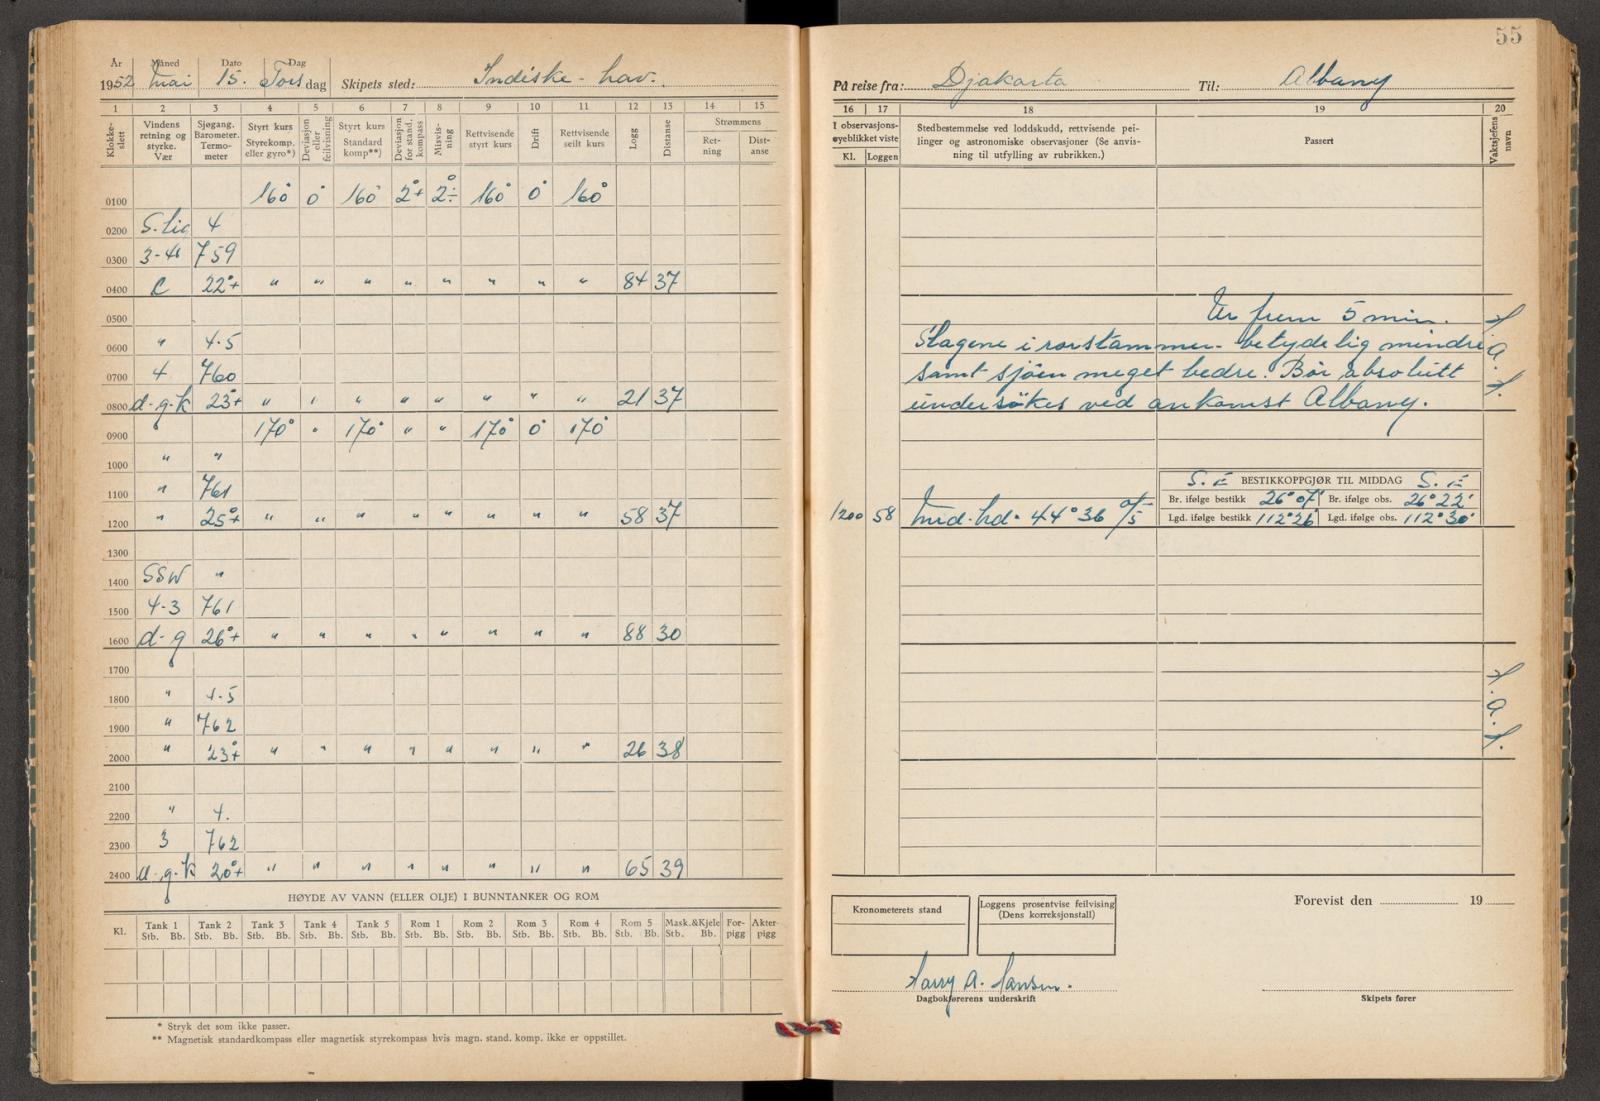 55
År Måned Dato Dag
1952 Mai 15. Torsdag Skipets sted: Indiske - hav.
På reise fra: Djakarta Til: Albany
1 2 3 4 5 6 7 8 9 10 11 12 13 14 15
Klokkeslett
Vindens retning og styrke. Vær
Sjøgang. Barometer. Termometer
Styrt kurs Styrekomp. eller gyro*)
Deviasjon eller feilvisning
Styrt kurs Standard komp**)
Deviasjon for stand. kompass
Misvisning
Rettvisende styrt kurs
Drift
Rettvisende seilt kurs
Logg
Distanse
Strømmens
Retning
Distanse
0100 160° 0° 160° 2°+ 2°÷ 160° 0° 160°
0200 S.lig 4
0300 3-4 759
0400 C 22°+ " " " " " " " " 84 37
0500
0600 " 4-5
0700 4 760
0800 d-g-k 23°+ " " " " " " " " 21 37
0900 170° " 170° " " 170° 0° 170°
1000 " "
1100 " 761
1200 " 25°+ " " " " " " " " 58 37
1300
1400 SSW "
1500 4-3 761
1600 d-g 26°+ " " " " " " " " 88 30
1700
1800 " 4-5
1900 " 762
2000 " 23°+ " " " " " " " " 26 38
2100
2200 " 4.
2300 3 762
2400 d-g-k 20°+ " " " " " " " " 65 39
HØYDE AV VANN (ELLER OLJE) I BUNNTANKER OG ROM
Kl. Tank 1 Tank 2 Tank 3 Tank 4 Tank 5 Rom 1 Rom 2 Rom 3 Rom 4 Rom 5 Mask.&Kjele For-pigg Akter-pigg
Stb. Bb. Stb. Bb. Stb. Bb. Stb. Bb. Stb. Bb. Stb. Bb. Stb. Bb. Stb. Bb. Stb. Bb. Stb. Bb. Stb. Bb.
* Stryk det som ikke passer.
** Magnetisk standardkompass eller magnetisk styrekompass hvis magn. stand. komp. ikke er oppstillet.
16 17 18 19 20
I observasjons-øyeblikket viste
Kl. Loggen
Stedbestemmelse ved loddskudd, rettvisende pei-
linger og astronomiske observasjoner (Se anvis-
ning til utfylling av rubrikken.)
Passert
Vaktsjefens navn
Ur frem 5 min.
Slagene i rorstammen betydelig mindre
samt sjöen meget bedre. Bör absolutt
undersökes ved ankomst Albany.
H. A. H.
S. E BESTIKKOPPGJØR TIL MIDDAG S. E
Br. ifølge bestikk 26° 07' Br. ifølge obs. 26° 22'
1200 58 Mid. hd. 44° 36
Lgd. ifølge bestikk 112° 26' Lgd. ifølge obs. 112° 30'
H. A. H.
Kronometerets stand
Loggens prosentvise feilvising
(Dens korreksjonstall)
Forevist den 19
Harry A. Hansen.
Dagbokførerens underskrift
Skipets fører